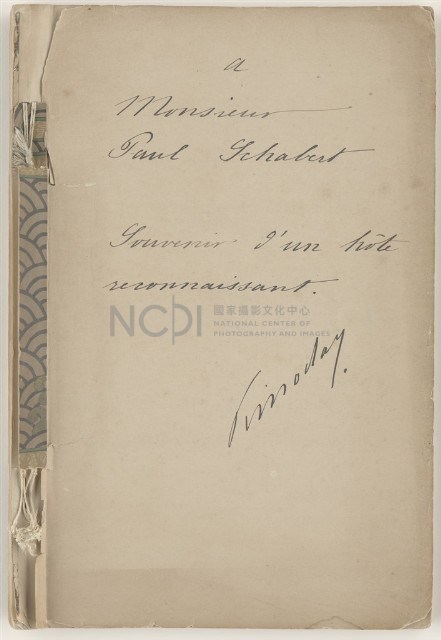 a
Monsieur
Paul Schabert
Souvenir d'un hôte
reconnaissant.
NCPI 國家攝影文化中心
NATIONAL CENTER OF
PHOTOGRAPHY AND IMAGES